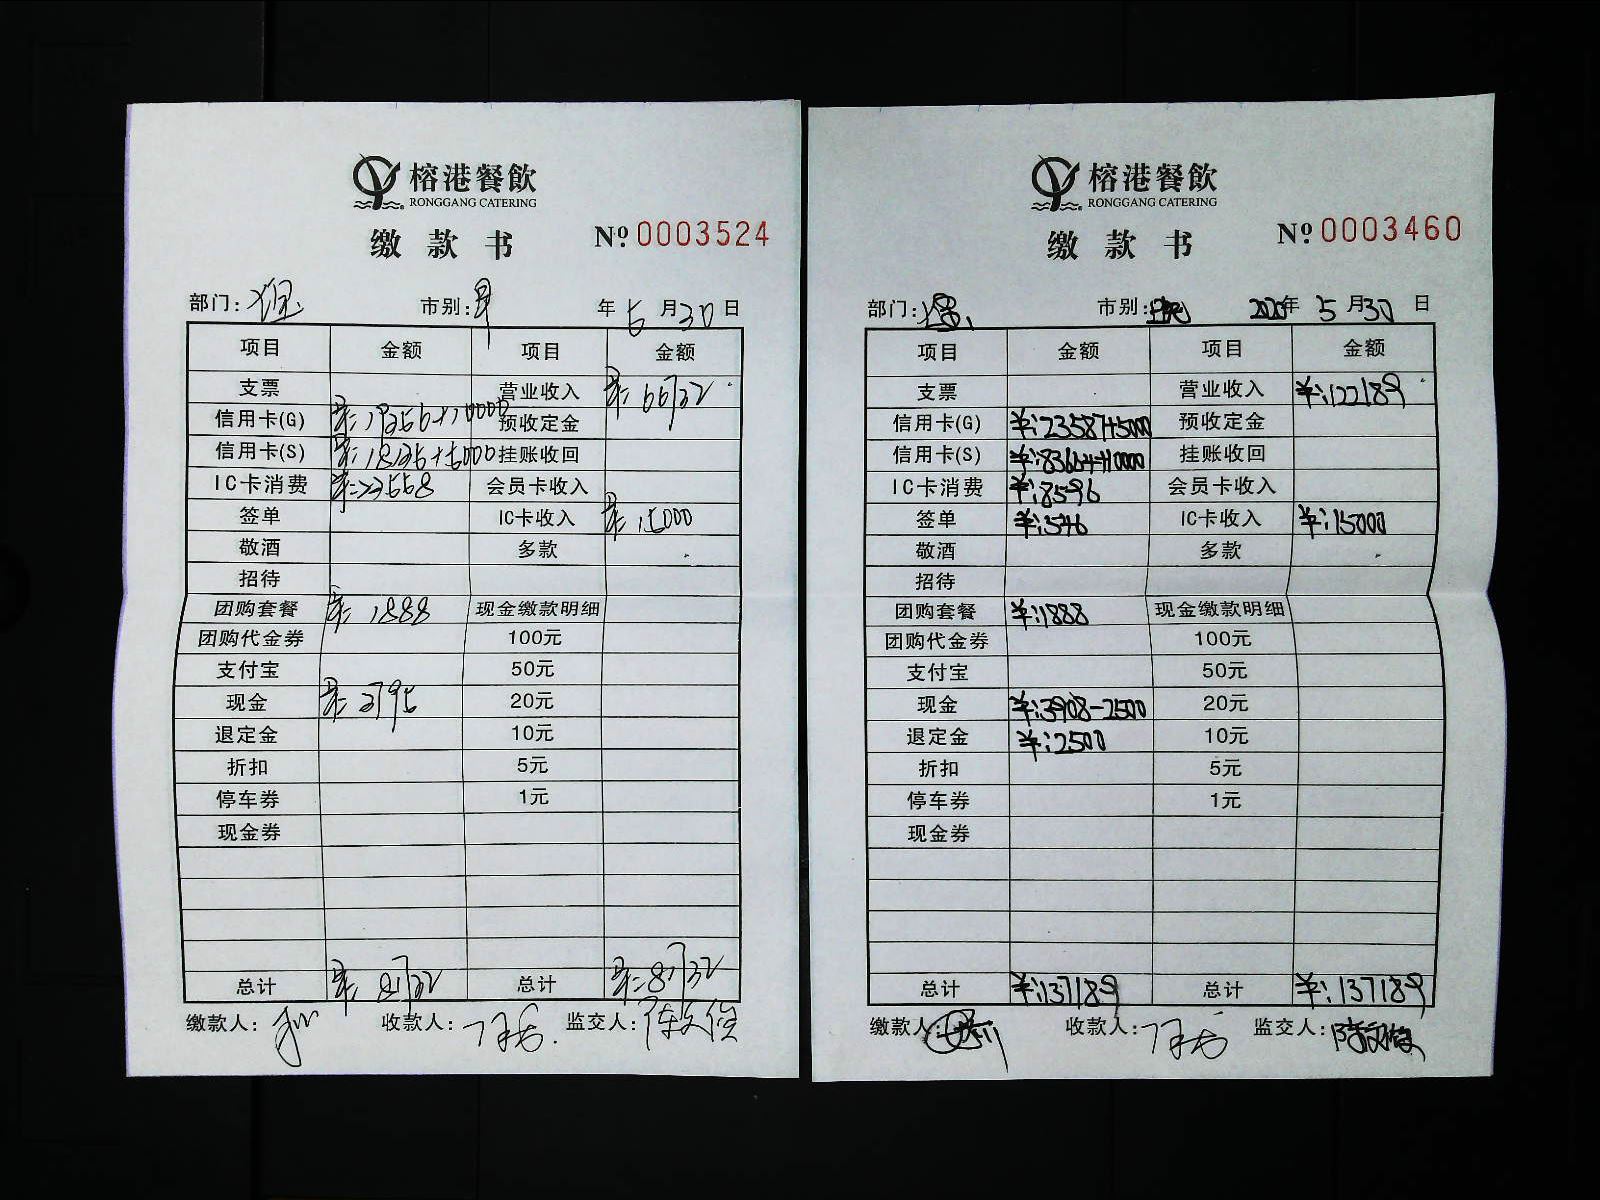 榕港餐飲
RONGGANG CATERING
缴款书
Nº 0003524
部门: 市别:早 年 5月30日
项目 金额 项目 金额
支票 营业收入 ¥:66732
信用卡(G) ¥:19356+10000 预收定金
信用卡(S) ¥:18135+5000 挂账收回
IC卡消费 ¥:23558 会员卡收入
签单 IC卡收入 ¥:15000
敬酒 多款
招待
团购套餐 ¥:1888 现金缴款明细
团购代金券 100元
支付宝 50元
现金 ¥:3795 20元
退定金 10元
折扣 5元
停车券 1元
现金券
总计 ¥:81732 总计 ¥:81732
缴款人: 收款人: 监交人:陈文俊
榕港餐飲
RONGGANG CATERING
缴款书
Nº 0003460
部门: 市别:晚 2020年 5月30日
项目 金额 项目 金额
支票 营业收入 ¥:122189
信用卡(G) ¥:23587+5000 预收定金
信用卡(S) ¥:83664+10000 挂账收回
IC卡消费 ¥:8596 会员卡收入
签单 ¥:546 IC卡收入 ¥:15000
敬酒 多款
招待
团购套餐 ¥:1888 现金缴款明细
团购代金券 100元
支付宝 50元
现金 ¥:3908-2500 20元
退定金 ¥:2500 10元
折扣 5元
停车券 1元
现金券
总计 ¥:137189 总计 ¥:137189
缴款人: 收款人: 监交人:陈文俊